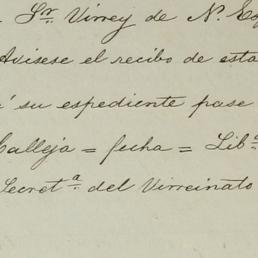 Sr. Virrey de N. Es
Avisese el recibo de esta
su espediente pase
Calleja = fecha = Lib.
Secret.a del Virreinato